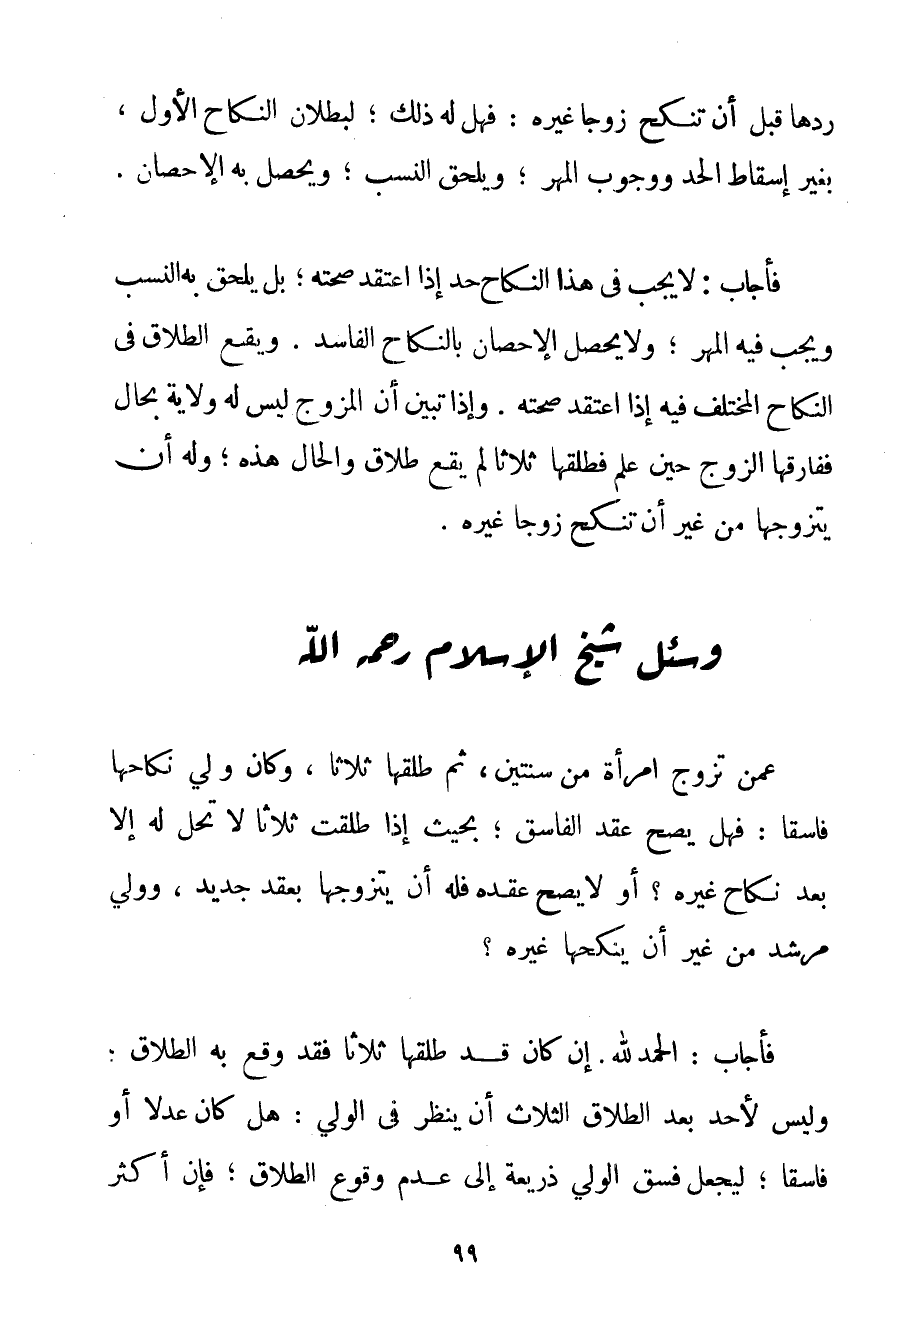 ردها قبل أن تنكح زوجا غيره : فهل له ذلك ؛ لبطلان النكاح الأول ،
بغير إسقاط الحد ووجوب المهر ؛ ويلحق النسب ؛ ويحصل به الإحصان .
فأجاب : لا يجب فى هذا النكاح حد إذا اعتقد صحته ؛ بل يلحق به النسب
ويجب فيه المهر ؛ ولا يحصل الإحصان بالنكاح الفاسد . ويقع الطلاق فى
النكاح المختلف فيه إذا اعتقد صحته . وإذا تبين أن المزوج ليس له ولاية بحال
ففارقها الزوج حين علم فطلقها ثلاثا لم يقع طلاق والحال هذه ؛ وله أن
يتزوجها من غير أن تنكح زوجا غيره .
وسئل شيخ الإسلام رحمه الله
عمن تزوج امرأة من سنتين ، ثم طلقها ثلاثا ، وكان ولي نكاحها
فاسقا : فهل يصح عقد الفاسق ؛ بحيث إذا طلقت ثلاثا لا تحل له إلا
بعد نكاح غيره ؟ أو لا يصح عقده فله أن يتزوجها بعقد جديد ، وولي
مرشد من غير أن ينكحها غيره ؟
فأجاب : الحمد لله . إن كان قد طلقها ثلاثا فقد وقع به الطلاق :
وليس لأحد بعد الطلاق الثلاث أن ينظر فى الولي : هل كان عدلا أو
فاسقا ؛ ليجعل فسق الولي ذريعة إلى عدم وقوع الطلاق ؛ فإن أكثر
٩٩